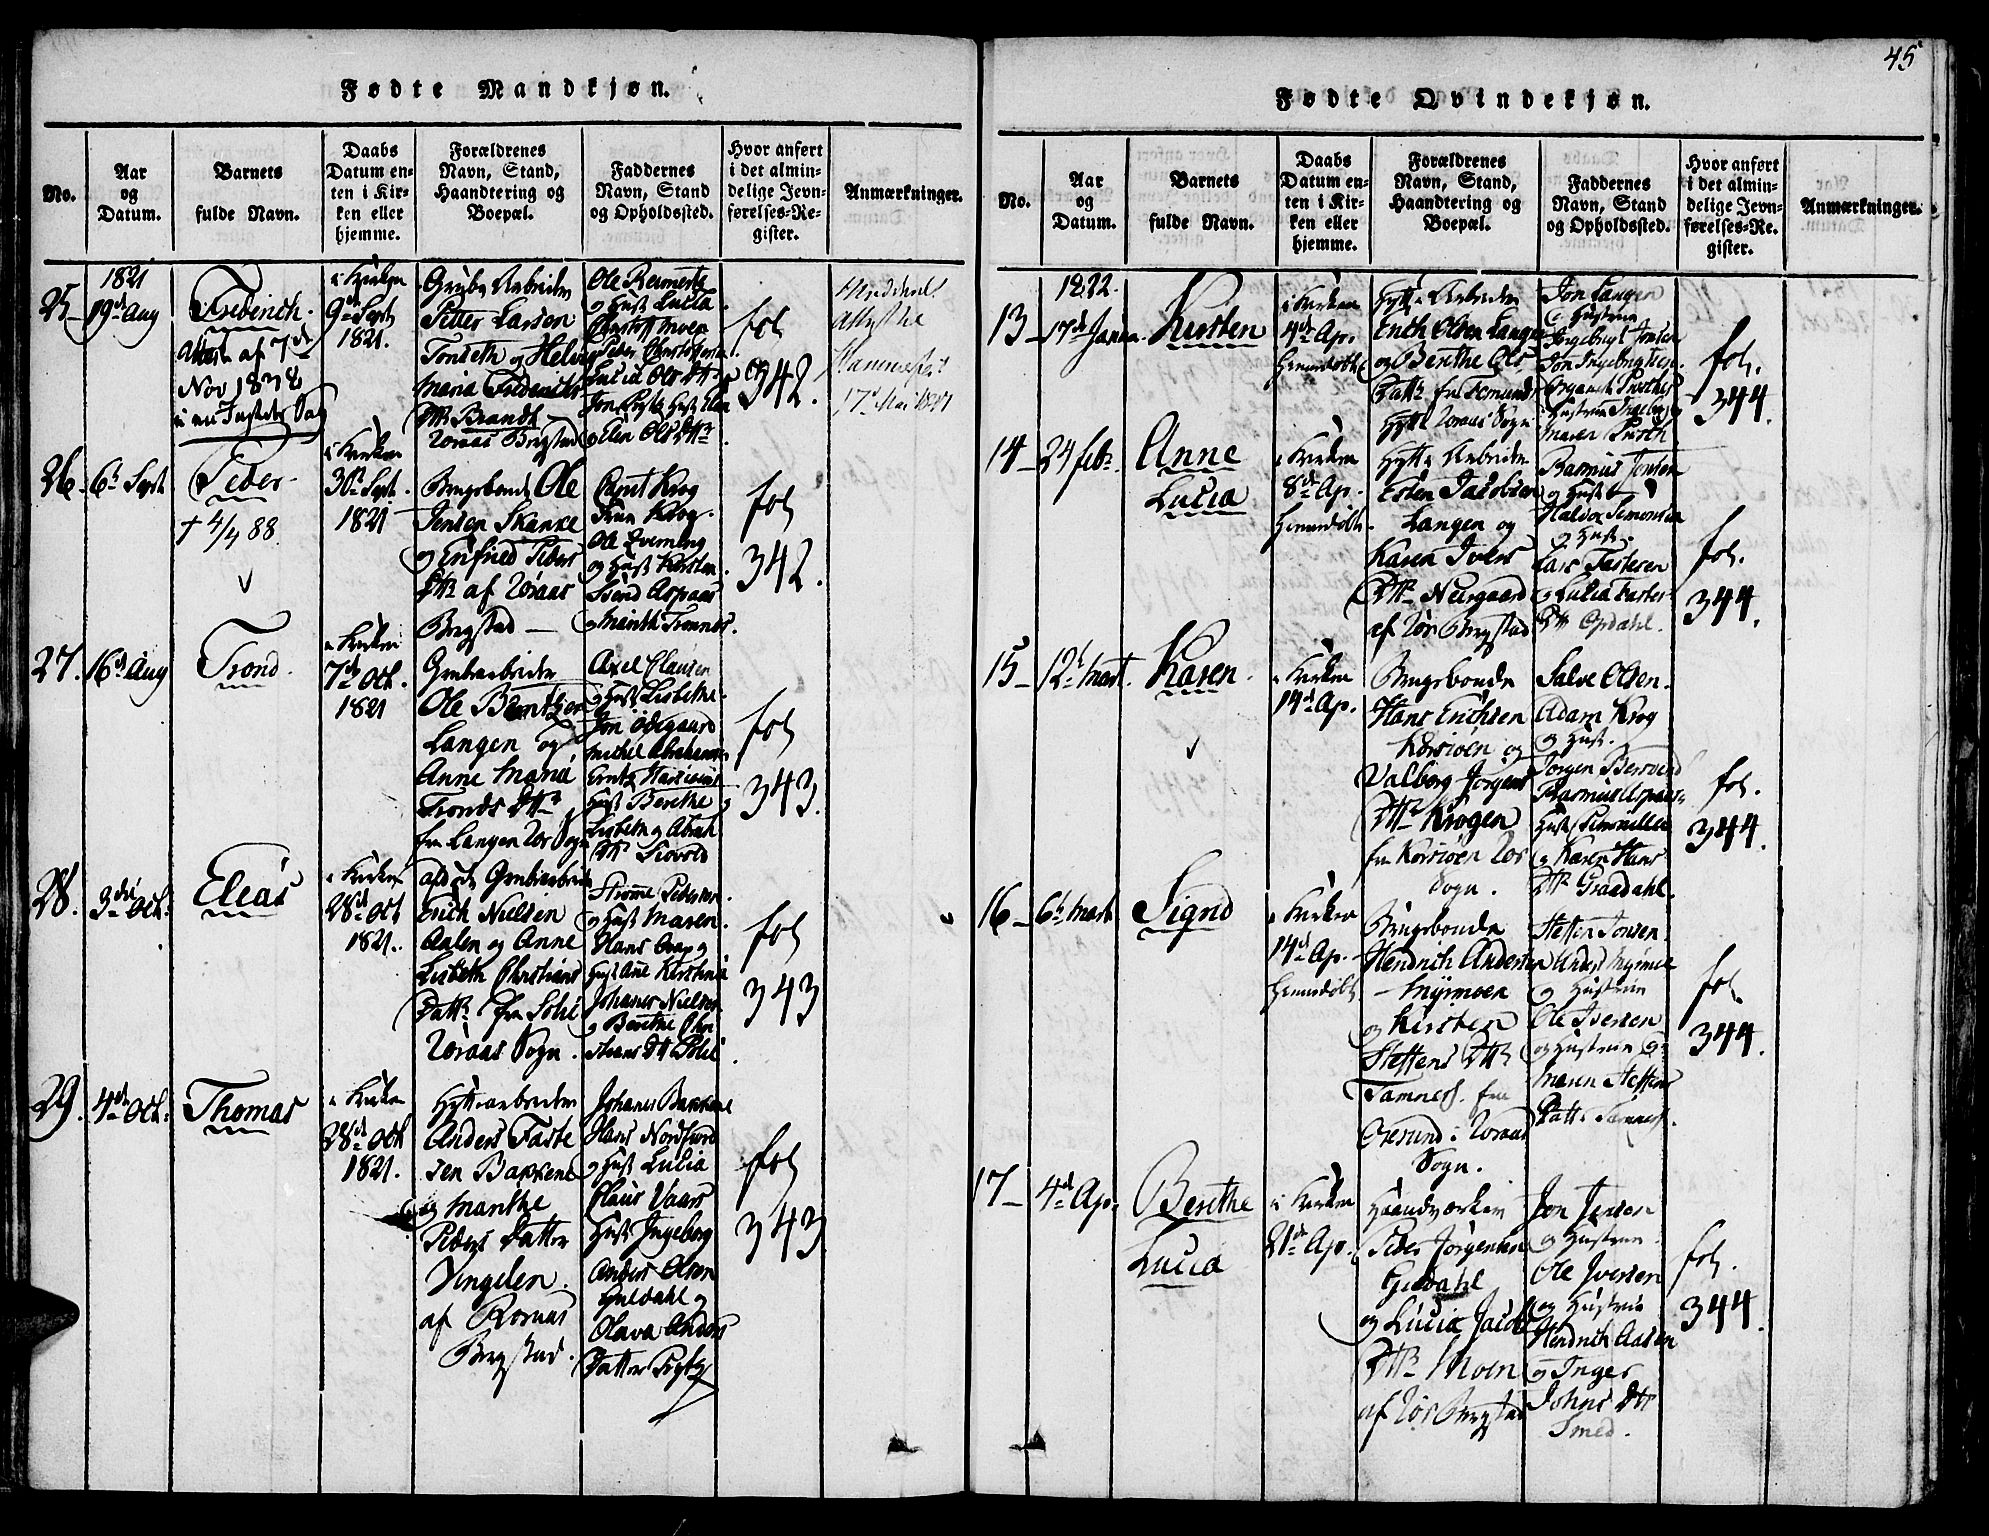 45
Fødte Mandkjøn.
No.
Aar
og
Datum.
Barnets
fulde Navn.
Daabs
Datum en-
ten i Kir-
ken eller
hjemme.
Forældrenes
Navn, Stand,
Haandtering og
Boepæl.
Faddernes
Navn, Stand
og Opholdssted.
Hvor anført
i det almin-
delige Jevn-
førelses-Re-
gister.
Anmærkninger.
1821
25
19de Aug
Frederich
Attest af 7de
Nov 1838
i Kirken
9de Sept
1821.
Grube Arbeider
Petter Larsen
Tonseth og Helvig
Maria Frederichs
Dttr Brandt
Røraas Bergstad
og Hust Lucia
Christoff Moen
Peder Christophersen
Lucia Ols Dttr
og Elen Ols Dttr
fol
342.
Meddeelt
Attest
Hammerfest
26
6te Sept
Peder
+ 4/4 88
i Kirken
30te Sept
1821
Brugsbonde Ole
Jensen Skanke
og Enfried Peders
Dttr af Røraas
Bergstad
Frue Krog
Ole Evensen
og Hust Kirsten
Svend Aspaas
og Marith Trønnes.
fol
342.
27.
16de Aug
Trond
i Kirken
7de Oct.
1821
Grubearbeider
Ole Bentzen
Langen og
Anne Maria
Tronds Dttr
fra Langen Rør Sogn
Axel Clausen
og Hust Lisbethe
Jon Ødegaard
Michel Abrahams
Hust Berethe og
Lisbeth Abrah
fol
343.
28.
3die Oct.
Elias
i Kirken
28de Oct
1821.
afdøde Grubearbeider
Erich Nielsen
Aalen og Anne
Lisbeth Christians
Datter fra Solie
Røraas Sogn.
Strømme Pedersen
og Hust Maren
Hans Aas og
Hust Ane Kirstina
Johanes Nielsen
og Berethe Chri
stians Dtt Solie
fol
343
29.
4de Oct.
Thomas
i Kirken
28de Oct
1821.
Hyttearbeider
Anders Faste
sen Bakkene
og Marithe
Peders Datter
Yngelsen
af Røraas
Bergstad.
Johanes Bakkene
Hans Nordfiord
og Hust Lucia
Claus Vaars
Hust Ingeborg
Anders Olsen
Guldahl og
Olava Anders
Datter
fol
343
Fødte Qvindekjøn.
No.
Aar
og
Datum.
Barnets
fulde Navn.
Daabs
Datum en-
ten i Kir-
ken eller
hjemme.
Forældrenes
Navn, Stand,
Haandtering og
Boepæl.
Faddernes
Navn, Stand
og Opholdssted.
Hvor anført
i det almin-
delige Jevn-
førelses-Re-
gister.
Anmærkninger.
1822.
13
17de Janua.
Kirsten
i Kirken
4de Ap.
hiemdøbt
Hytte Arbeider
Erich Olsen Langen
og Berithe Ols
Dattr fra Femunds
Hytte Røraas Sogn
Jon Langen
og Hustrue
Ingebrigt Jonsen
Jon Ingebrigtsen
Hustrue Ingeborg og
Maren
fol.
344.
14
24 febr.
Anne
Lucia
i Kirken
8de Ap.
hiemdøbt.
Hytte Arbeider
Esten Jacobsen
Langen og
Karen Ivers
Dttr Neergaard
af Rør Bergstad
Rasmus Jonsen
og Hust
Haldor Simonsen
og Hust.
Lars Fastesen
og Lucia Faster
Dtt Opdahl.
fol.
344.
15
12te Mart.
Karen
i Kirken
14de Ap.
Brugsbonde
Hans Erichsen
Korsiøen og
Valborg Jørgens
Dttr Krogen
fra Korsiøen Rør
Sogn.
Salve Olsen.
Adam Krog
og Hust.
Jørgen
Rasmus Aspaas
Hust Pernilla
og Karen Hans
Dttr Graadahl.
fol.
344.
16
6te Mart.
Sigrid
i Kirken
14de Ap.
hiemdøbt
Brugsbonde
Hendrich Andersen
Myrmoen
og Kirsten
Steffens Dtt
Tamnes. fra
Oresund i Røraas
Sogn.
Steffen Jonsen.
Anders Myrmoe
og Hustrue
Ole Iversen
og Hustrue og
Maren Steffens
Datter Tamnes.
fol.
344.
17
4de Ap.
Berethe
Lucia
i Kirken
21de Ap.
Haandværker
Peder Jørgensen
Guldahl
og Lucia Jacobs
Dttr Moen
af Rør Bergstad
Jon Jensen
og Hustrue
Ole Iversen
og Hustrue
Hendrich Aasen
og Inger
Johns Dtt
Smed.
fol.
344.